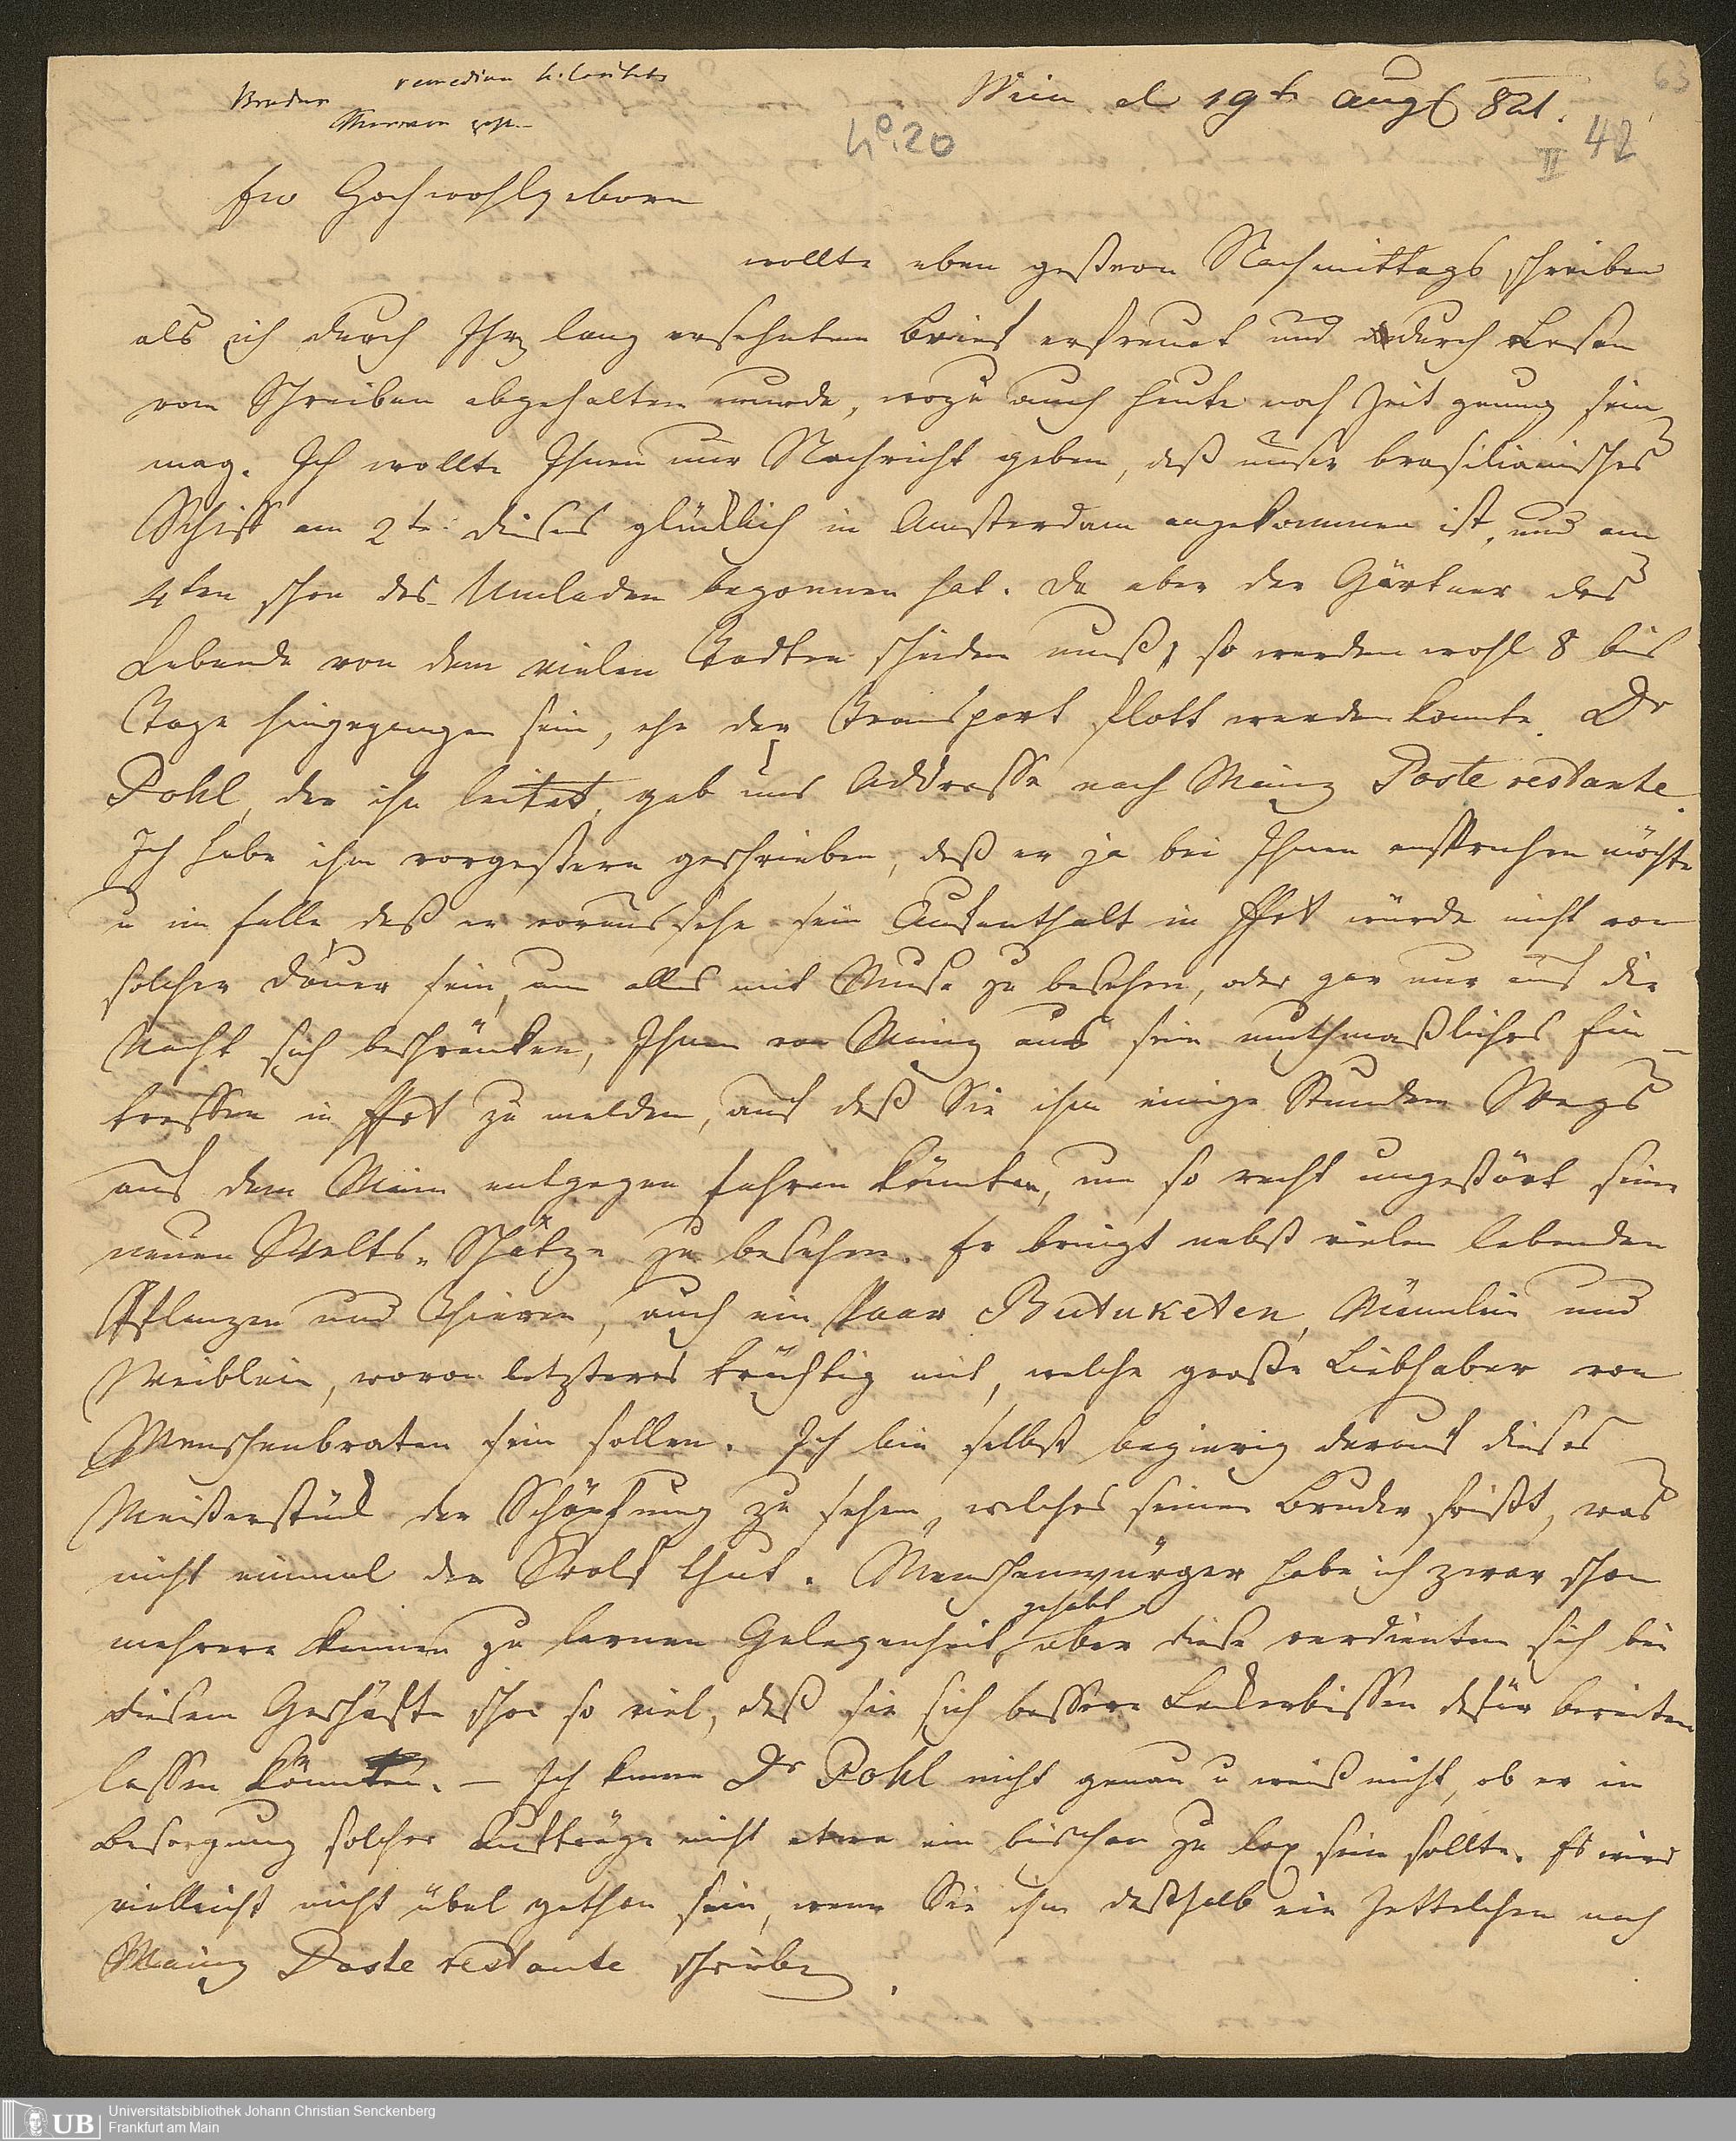 63
Wien d 19t Augst 821.
No. 20
42
II
Ew Hochwohlgeborn
wollte eben gestern Nachmittags schreiben
als ich durch Ihr lang ersehnten Brief erfreuet und durch Lesen
vom Schreiben abgehalten wurde, wozu auch heute noch Zeit genug sein
mag. Ich wollte Ihnen nur Nachricht geben, daß unser brasilianisches
Schiff am 2te dieses glücklich in Amsterdam angekommen ist, und am
4ten schon das Umladen begonnen hat. Da aber der Gärtner das
Lebende von dem vielen Todten scheiden muß, so werden wohl 8 bis
Tage hingegangen sein, ehe der Transport flott werden konnte. Dr
Pohl, der ihn leitet, gab uns Addresse nach Mainz Poste restante.
Ich habe ihm vorgestern geschrieben, daß er ja bei Ihnen ansprechen möchte
u im Falle daß er voraussehe sein Aufenthalt in Ffrt würde nicht von
solcher Dauer sein, um alles mit Muse zu besehen, oder gar nur auf die
Nacht sich beschränken, Ihnen von Mainz aus sein muthmaßliches Ein-
treffen in Ffrt zu melden, auf daß Sie ihm einige Stunden Wegs
auf dem Main entgegen fahren könnten, um so recht ungestört seine
neuen Welts-Schätze zu besehen. Er bringt nebst vielen lebenden
Pflanzen und Thieren, auch ein Paar Butuketen, Männlein und
Weiblein, wovon letzteres trächtig mit, welche große Liebhaber von
Menschenbraten sein sollen. Ich bin selbst begierig darauf dieses
Meisterstück der Schöpfung zu sehen, welches seinen Bruder frißt, was
nicht einmal der Wolf thut. Menschenwürger habe ich zwar schon
mehrere kennen zu lernen Gelegenheit gehabt, aber diese verdienten sich bei
diesem Geschäfte schon so viel, daß sie sich bessere Leckerbissen dafür bereiten
lassen können. — Ich kenne Dr Pohl nicht genau u weiß nicht, ob er in
Besorgung solcher Aufträge nicht etwa ein bischen zu lax sein sollte. Es wird
vielleicht nicht übel gethan sein, wenn Sie ihm deßhalb ein Zettelchen nach
Mainz Poste restante schreiben.
UB
Universitätsbibliothek Johann Christian Senckenberg
Frankfurt am Main